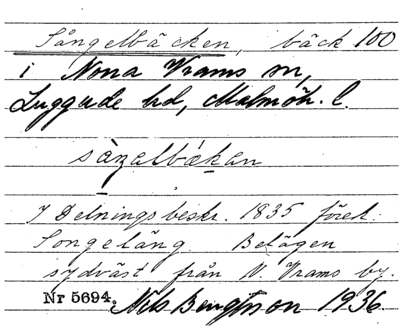 Sångelbäcken, bäck 100
i Norra Vrams sn,
Luggude hd, Malmöh. l.
sàŋalbɛ́kan
I Delningsbeskr. 1835 förek.
Songeläng Belägen
sydväst från N. Vrams by.
Nr 5694. Nils Bengtsson 1936.